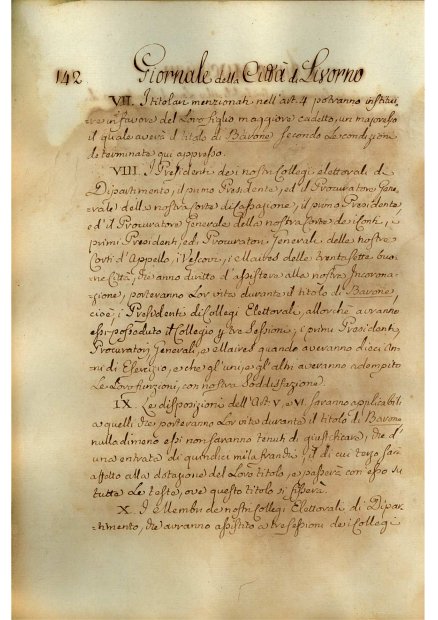 142 Giornale della Città di Livorno
VII. I titolari menzionati nell'art. 4 potranno institui-
re in favore del Loro figlio maggiore cadetto, un majorasco
il quale averà il titolo di Barone secondo Le condizioni
determinate qui appresso.
VIII. I Presidenti de i nostri Collegi elettorali di
Dipartimento, il primo Presidente, ed il Procurator Gene-
rale della nostra Corte di Cassazione, il primo Presidente
ed il Procurator Generale della nostra Corte dei Conti, i
primi Presidenti, ed i Procuratori Generali delle nostre
Corti d'Appello, i Vescovi, i Maires delle trentasette buo-
ne Città, che anno diritto d'assistere alla nostra Incorona-
zione, porteranno Lor vita durante il titolo di Barone,
cioè, i Presidenti di Collegi Elettorale, allorchè avranno
essi posseduto il Collegio p. tre Sessioni, i primi Presidenti,
Procuratori Generali, e Maires quando averanno dieci an-
ni di Esercizio, e che gl'uni, e gl'altri averanno adempito
Le Loro funzioni, con nostra Soddisfazione.
IX. Le disposizioni dell'Art. V. e VI. saranno applicabili
a quelli che porteranno Lor vita durante il titolo di Barone
nullo di meno essi non saranno tenuti di giustificare, che d'
una entrata di quindici mila franchi, il di cui terzo sarà
affetto alla dotazione del Loro titolo, e passerà con esso su
tutte Le teste, ove questo titolo si fisserà.
X. I Membri de nostri Collegi Elettorali di Dipar-
timento, che avranno assistito a tre sessioni dei Collegi